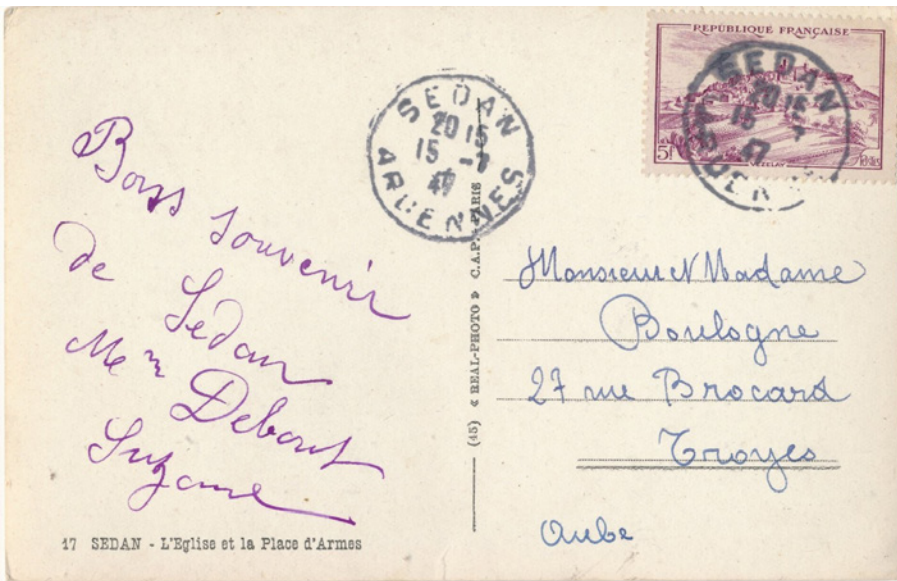 Bons souvenir
de Sedan
Me m Debout
Suzanne
17 SEDAN - L'Eglise et la Place d'Armes
SEDAN
20 15
15 -7
47
ARDENNES
(45) « REAL-PHOTO » C.A.P. - PARIS
REPUBLIQUE FRANÇAISE
5F
VEZELAY
Postes
SEDAN
20 15
15 -7
47
Monsieur & Madame
Boulogne
27 rue Brocard
Troyes
Aube